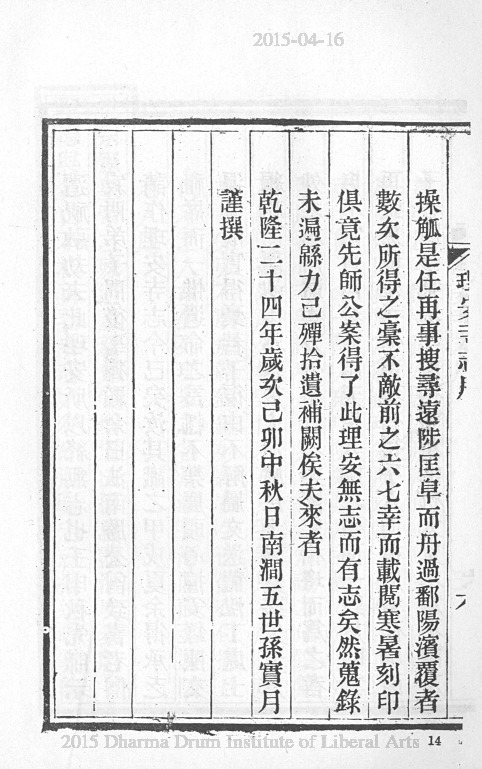 2015-04-16
操觚是任再事搜尋遠陟匡阜而舟過鄱陽濱覆者
數次所得之稾不敵前之六七幸而載閱寒暑刻印
俱竟先師公案得了此理安無志而有志矣然蒐錄
未遍緜力已殫拾遺補闕俟夫來者
乾隆二十四年歲次己卯中秋日南澗五世孫實月
謹撰
2015 Dharma Drum Institute of Liberal Arts
14